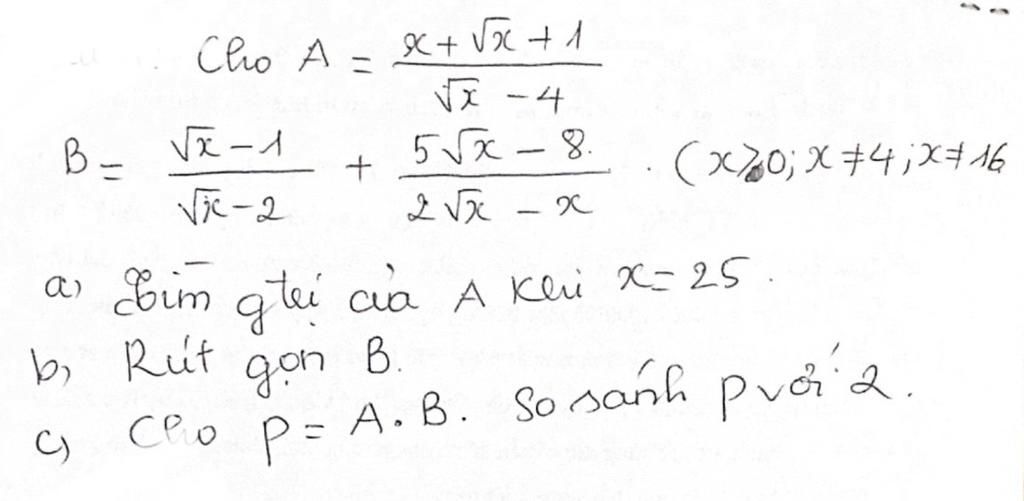 Cho A = (x + √x + 1)/(√x - 4)
B = (√x - 1)/(√x - 2) + (5√x - 8)/(2√x - x) . (x ≥ 0; x ≠ 4; x ≠ 16
a, Tìm gtrị của A khi x = 25.
b, Rút gọn B.
c, Cho P = A.B. So sánh P với 2.